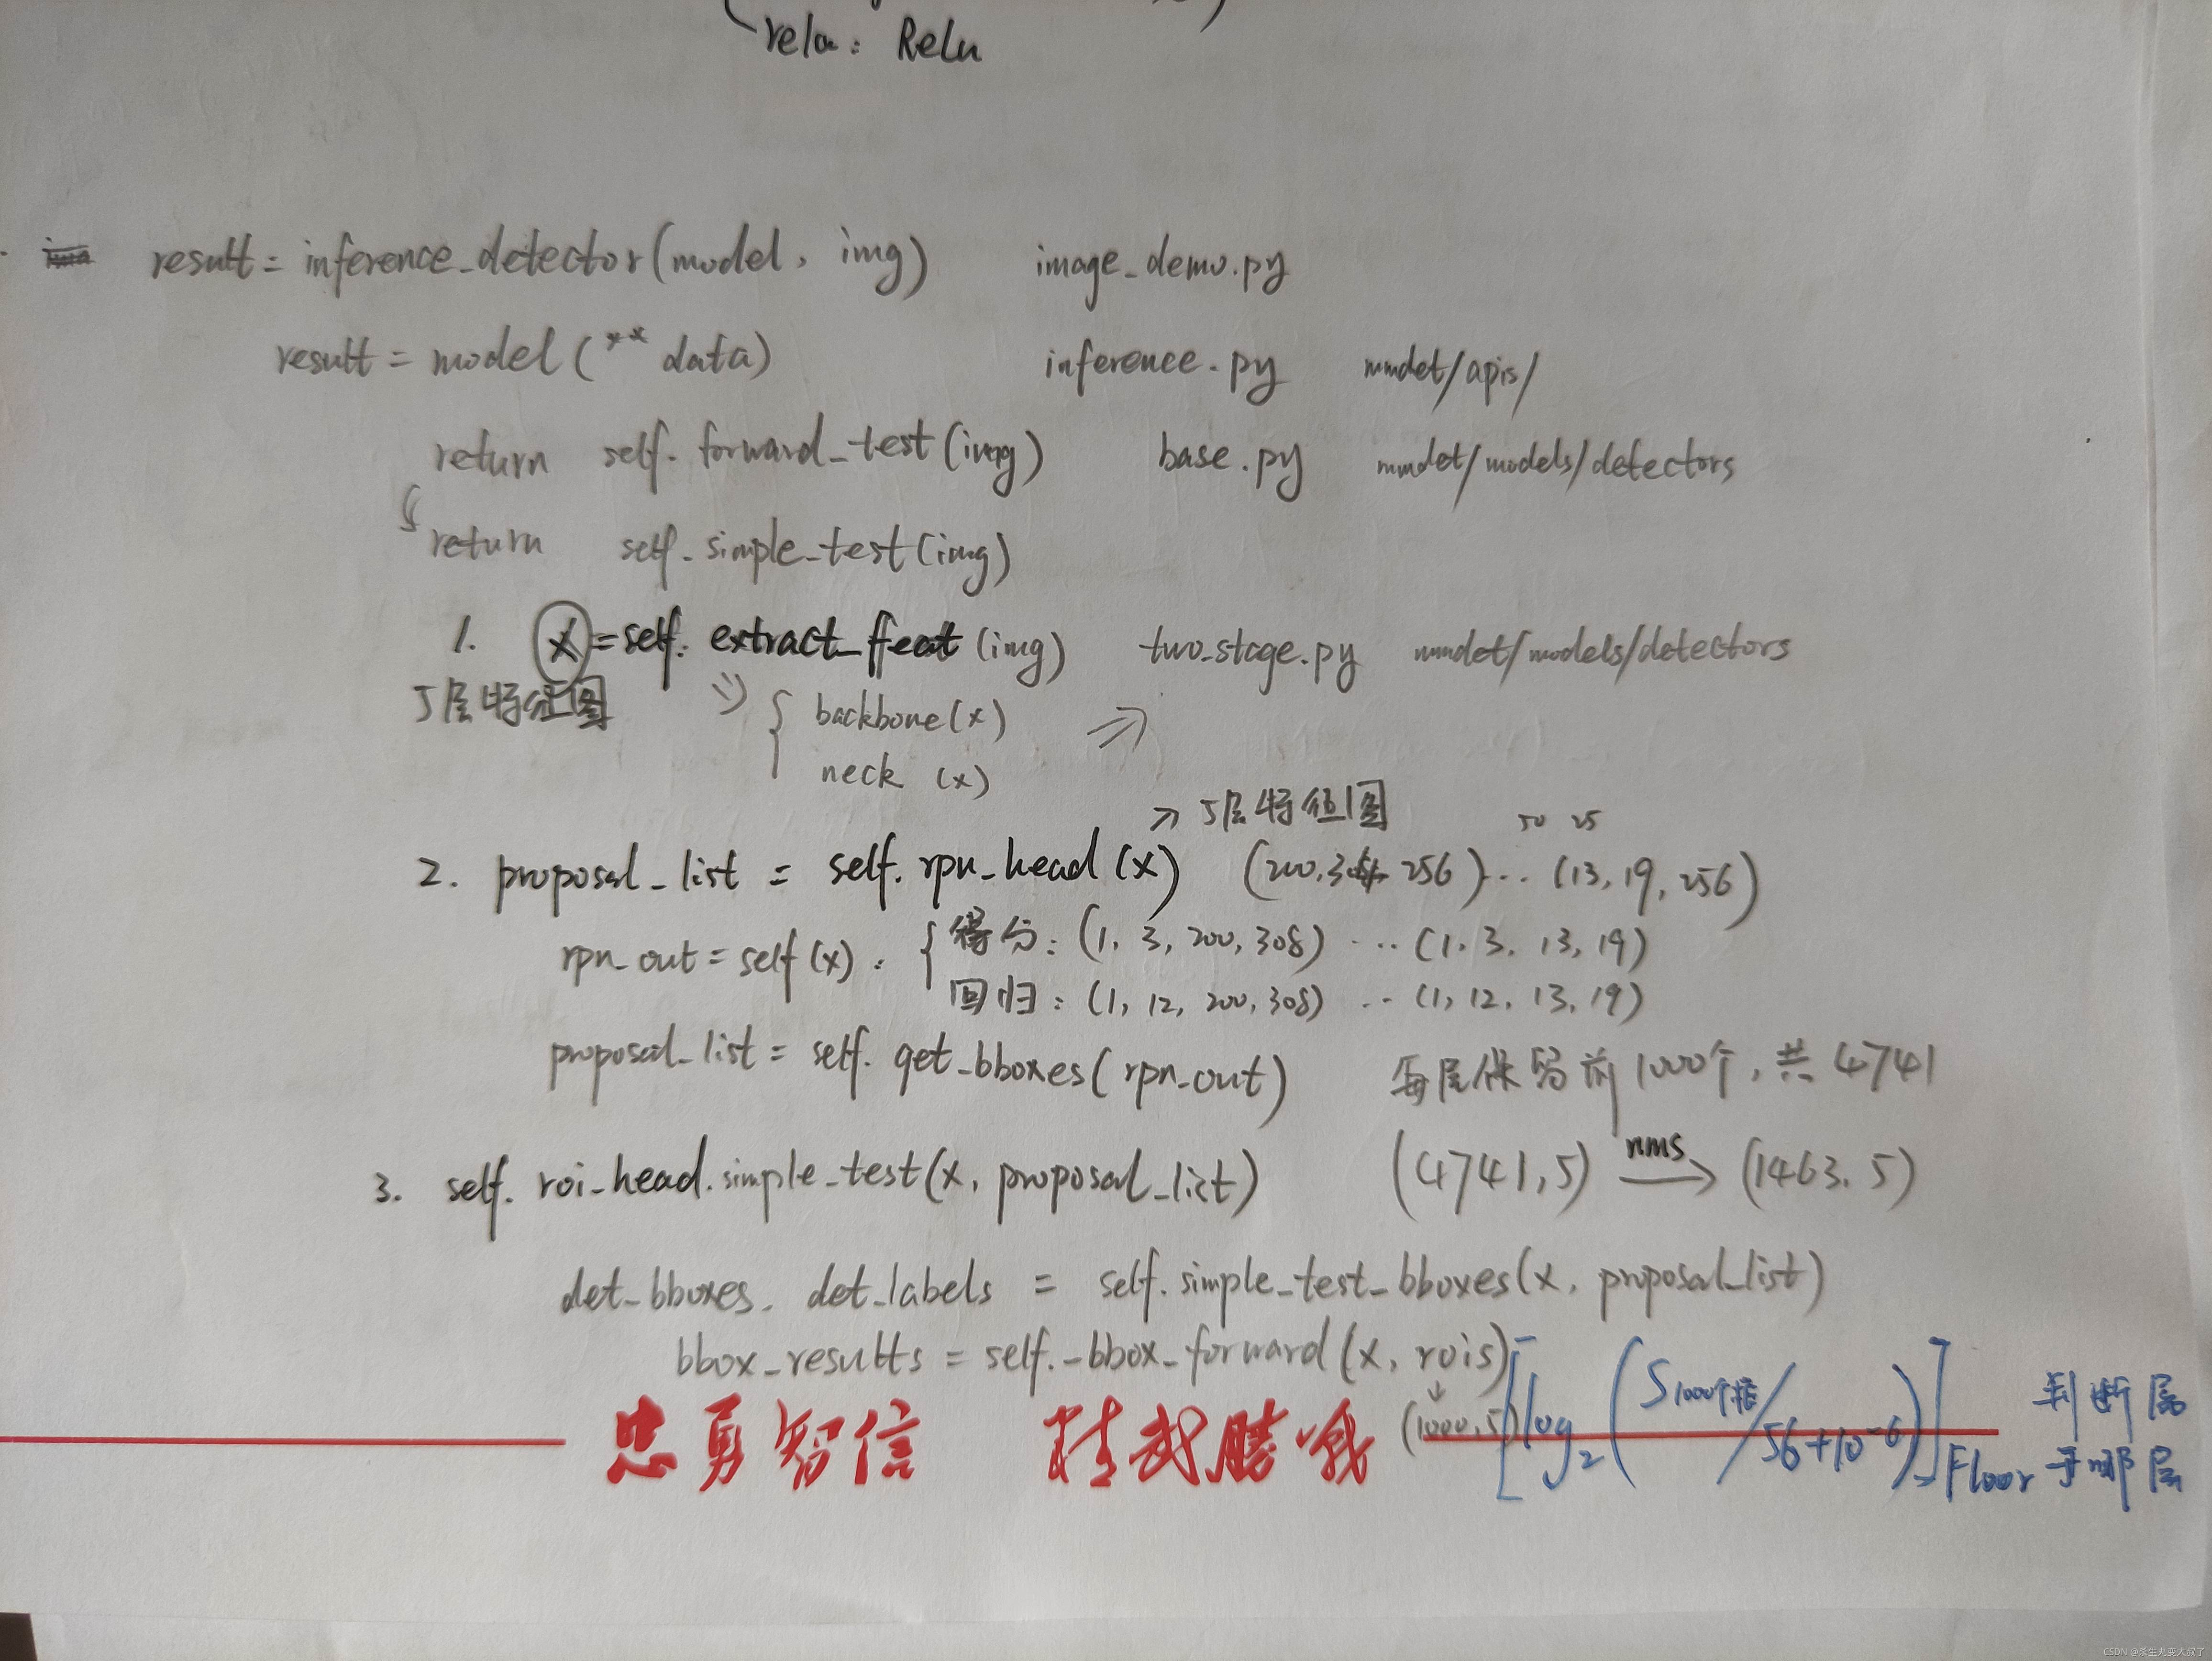 relu: Relu
result = inference_detector(model, img) image_demo.py
result = model(**data) inference.py mmdet/apis/
return self.forward_test(img) base.py mmdet/models/detectors
return self.simple_test(img)
1. x = self.extract_feat(img) two_stage.py mmdet/models/detectors
5层特征图 => { backbone(x) =>
neck (x)
↗ 5层特征图 50 25
2. proposal_list = self.rpn_head(x) (200,304, 256) ... (13, 19, 256)
rpn_out = self(x): { 得分: (1, 3, 200, 308) ... (1, 3, 13, 19)
回归: (1, 12, 200, 308) ... (1, 12, 13, 19)
proposal_list = self.get_bboxes(rpn_out) 每层保留前1000个,共4741
3. self.roi_head.simple_test(x, proposal_list) (4741, 5) nms → (1463, 5)
det_bboxes, det_labels = self.simple_test_bboxes(x, proposal_list)
bbox_results = self._bbox_forward(x, rois)
↓
(1000, 5) [log₂(S1000个框/56+10⁻⁶)] Floor 判断属于哪层
忠勇智信
CSDN @杀生丸变大叔了